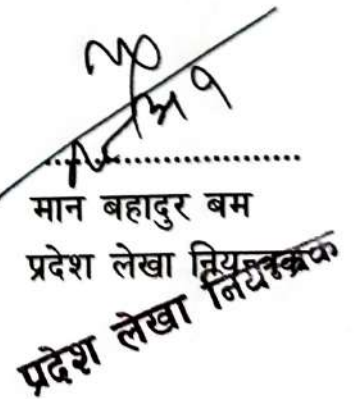 मान बहादुर बम
प्रदेश लेखा नियन्त्रक
प्रदेश लेखा नियन्त्रक